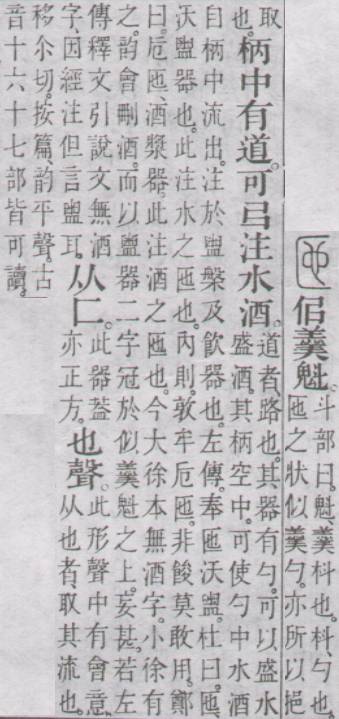 佀羹魁。斗部曰。魁、羹枓也。枓、勺也。
匜之狀似羹勺。亦所以挹
取
也。柄中有道。可㠯注水酒。道者路也。其器有勺。可以盛水
盛酒。其柄空中。可使勺中水酒
自柄中流出。注於盥槃及飲器也。左傳。奉匜沃盥。杜曰。匜、
沃盥器也。此注水之匜也。內則。敦牟卮匜。非餕莫敢用。鄭
曰。卮匜、酒漿器。此注酒之匜也。今大徐本無酒字。小徐有
之。韵會刪酒。而以盥器二字冠於似羹魁之上。妄甚。若左
傳釋文引說文無酒
字。因經注但言盥耳。从匚。此器葢
亦正方。也聲。此形聲中有會意。
从也者、取其流也。
移尒切。按篇、韵平聲。古
音十六十七部皆可讀。